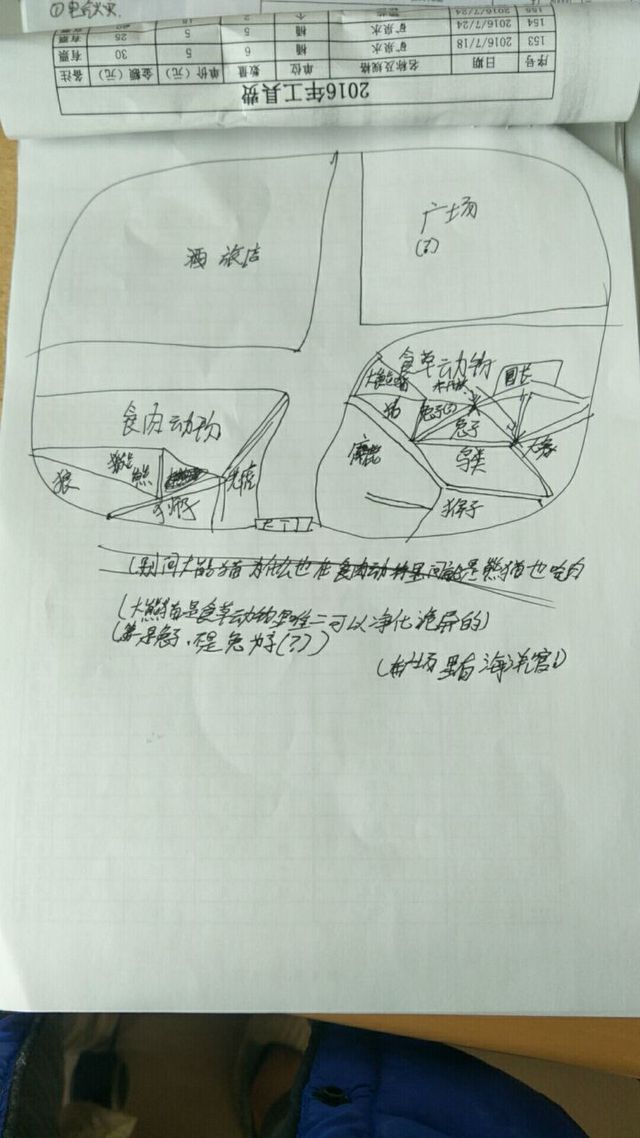 ①电
2016年工具费
序号 日期 名称及规格 单位 数量 单价（元） 金额（元） 备注
153 2016/7/18 矿泉水 桶 6 5 30 有票
154 2016/7/24 矿泉水 桶 5 5 25 有票
2016/7/24 个 2
酒 旅店
广场
食草动物
大熊猫
园长
兔子(?)
兔子
大象
鸟类
麋鹿
猴子
食肉动物
狼
熊
狮子
老虎
大门
(别问大熊猫为什么也在食肉动物里问就是熊猫也吃肉
(大熊猫是食草动物里唯二可以净化诡异的)
是兔子,不是兔子(?))
(广场里有海洋馆)